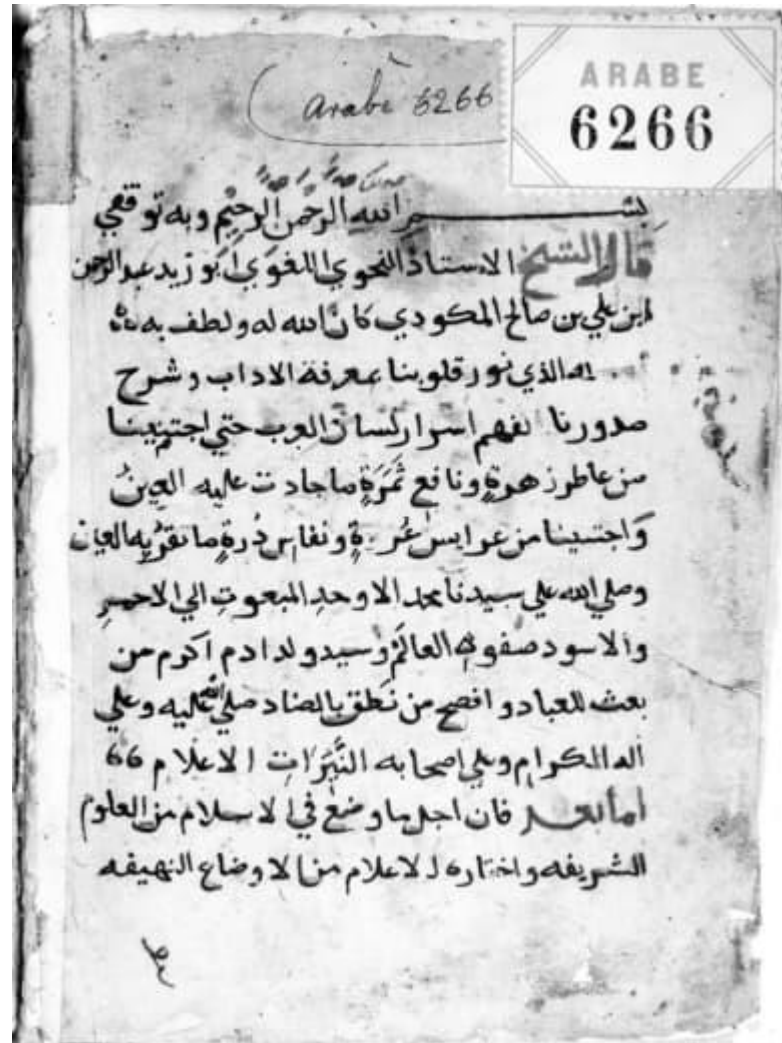 Arabe 6266
ARABE
6266
بسم الله الرحمن الرحيم وبه توفقي
قال الشيخ الاستاذ النحوي اللغوي ابو زيد عبد الرحمن
ابن علي بن صالح المكودي كان الله له ولطف به
الذي نور قلوبنا بمعرفة الاداب وشرح
صدورنا لفهم اسرار لسان العرب حتي اجتنينا
من عاطر زهرةٍ ونافع ثمَرَةٍ ما جادت عليه العين
وَاجتنينا من عرايس ونفايس دُرةٍ ما تقرُّ به العيان
وصلي الله علي سيدنا محمد الاوحدِ المبعوثِ الي الاحمرِ
والاسود صفوة العالم وسيد ولد ادم اكرم من
بعث للعباد وافصح من نطق بالضاد صلي الله عليه وعلي
اله الكرام وعلي اصحابه النَّيِّرَاتِ الاعلام 66
اما بعد فان اجل ما وضع في الاسلام من العلوم
الشريفه واختاره الاعلام من الاوضاع